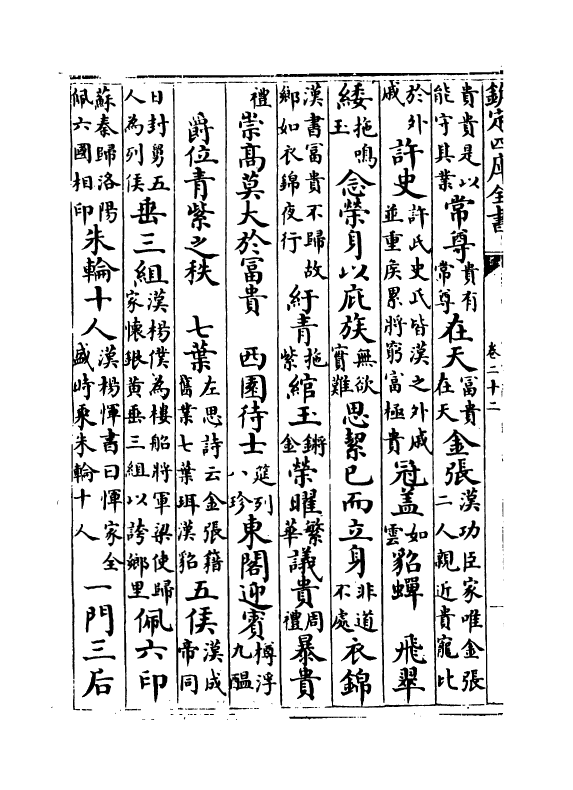 欽定四庫全書 卷二十二
貴貴是以能守其業常尊貴有常尊在天富貴在天金張漢功臣家唯金張二人親近貴寵比
於外戚許史許氏史氏皆漢之外戚並重侯累將窮富極貴冠盖如雲貂蟬 飛翠
緌拖鳴玉念榮身以庇族無欲實難思絜已而立身非道不處衣錦
漢書富貴不歸故鄉如衣錦夜行紆青拖紫綰玉鏘金榮曜繁華議貴周禮暴貴
禮崇高莫大於富貴 西園待士筵列八珍東閣迎賓樽浮九醖
爵位青紫之秩 七葉左思詩云金張籍舊業七葉珥漢貂五侯漢成帝同
日封舅五人為列侯垂三組漢楊僕為樓船將軍梁使歸家懷銀黄垂三組以誇鄉里佩六印
蘇秦歸洛陽佩六國相印朱輪十人漢楊惲書曰惲家全盛時乘朱輪十人一門三后